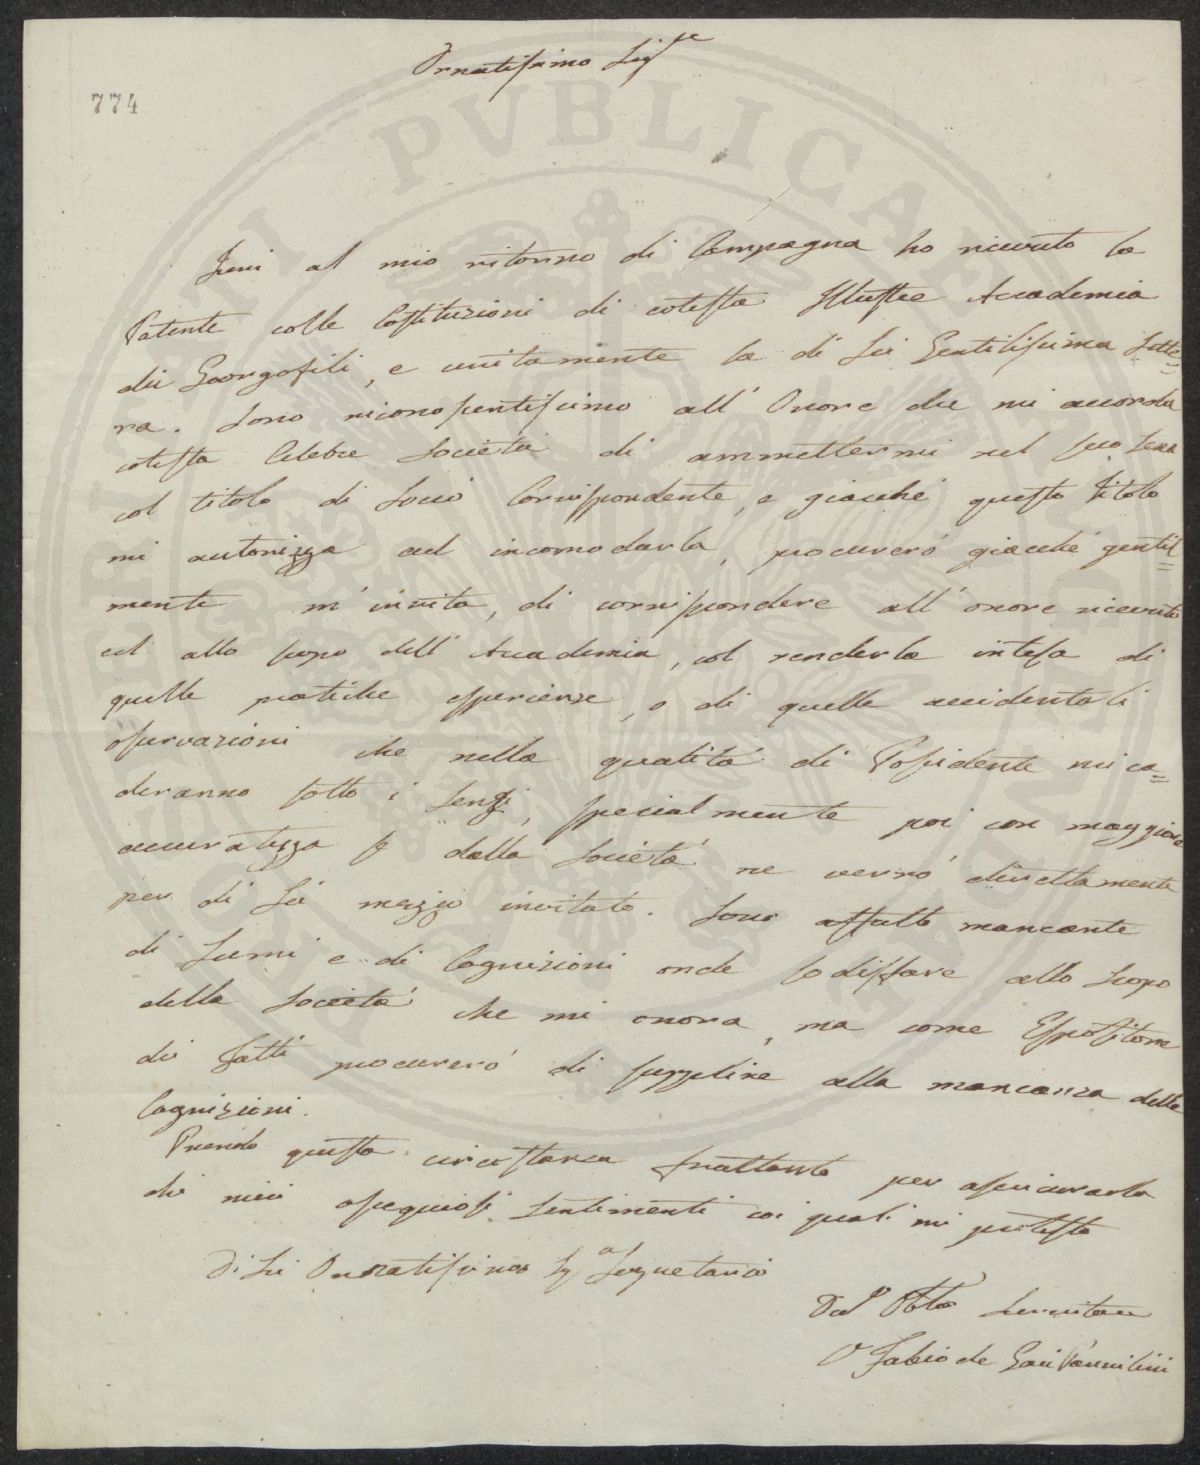 Ornatissimo Sigre
774
Jeri al mio ritorno di Campagna ho ricevuto la
Patente colle Costituzioni di cotesta Illustre Accademia
dei Georgofili, e unitamente la di Lei Gentilissima Lette=
ra. Sono riconoscentissimo all' Onore che mi accorda
cotesta Celebre Società di ammettermi nel suo seno
col titolo di Socio Corrispondente, e giacché questo Titolo
mi autorizza ad incomodarla, procurerò giacché gentil=
mente m' invita, di corrispondere all' onore ricevuto
ed allo scopo dell' Accademia, col renderla intesa di
quelle pratiche esperienze, o di quelle accidentali
osservazioni che nella qualità di Possidente mi ca=
deranno sotto i sensi, specialmente poi con maggiore
accuratezza se dalla Società ne verrò direttamente
per di Lei mezzo invitato. Sono affatto mancante
di Lumi e di Cognizioni onde sodisfare allo Scopo
della Società che mi onora, ma come Espositore
di fatti procurerò di supplire alla mancanza delle
Cognizioni.
Prendo questa circostanza frattanto per assicurarla
dei miei ossequiosi sentimenti coi quali mi protesto
Di Lei Ornatissimo Sig Segretario
Servitore
Fabio de
PUBLICAE